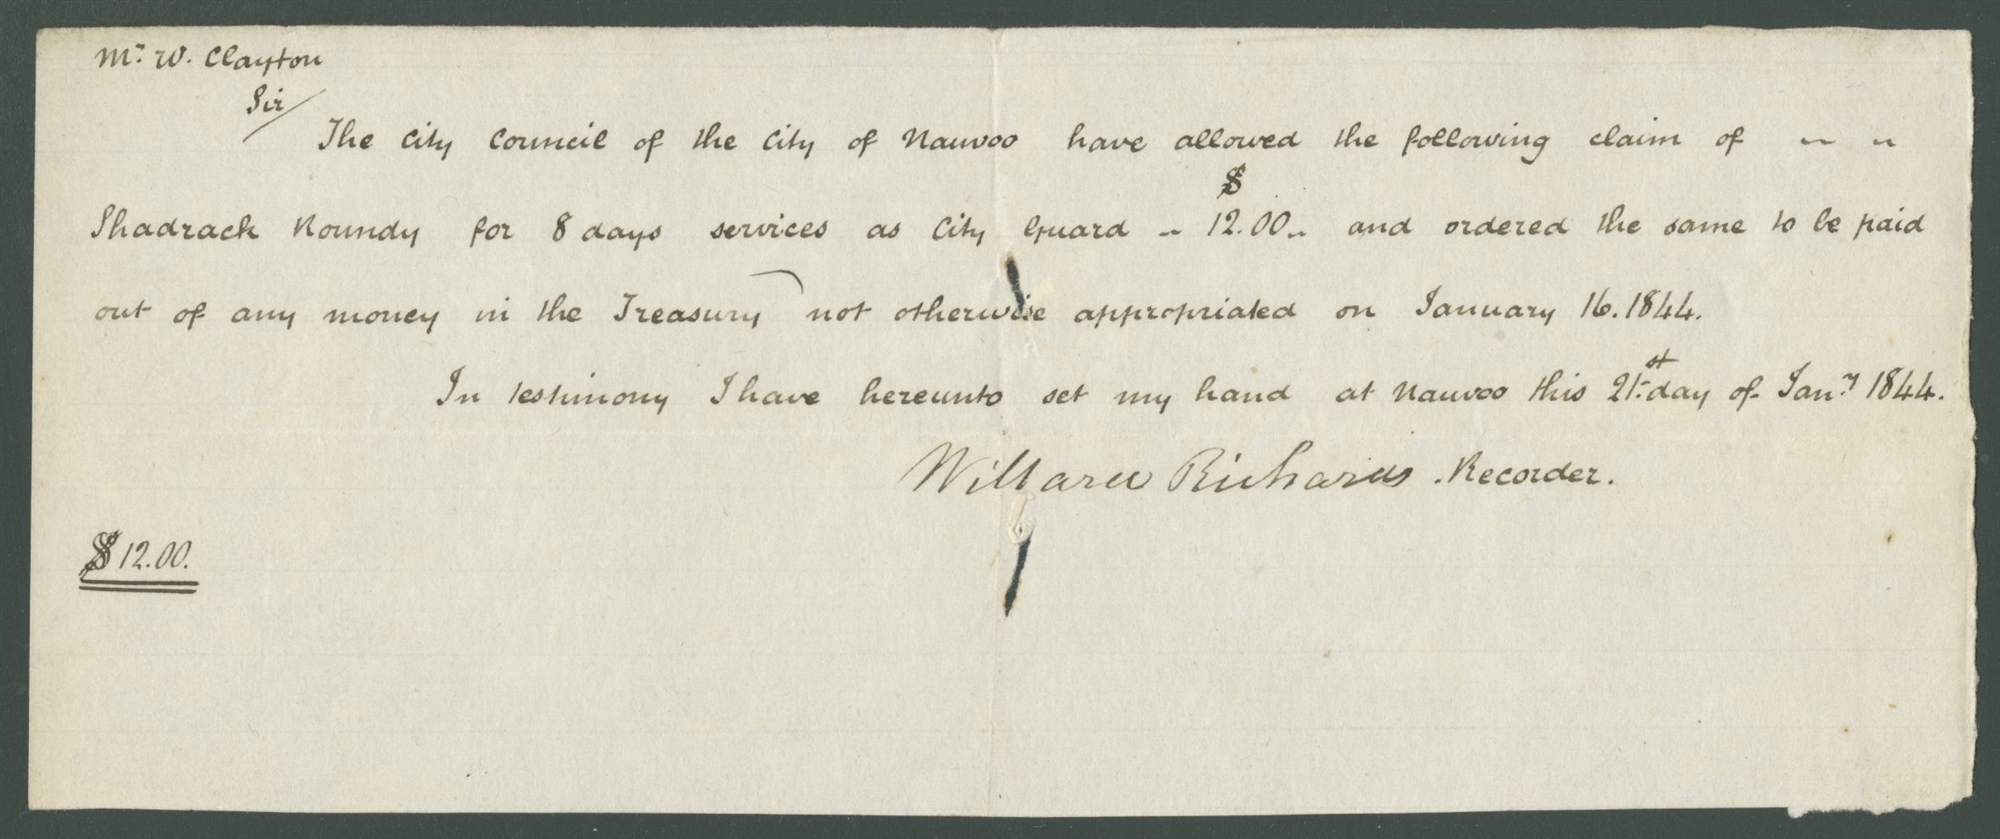 Mr. W. Clayton
Sir/
The City Council of the City of Nauvoo have allowed the following claim of
Shadrack Roundy for 8 days services as City Guard - $12.00 - and ordered the same to be paid
out of any money in the Treasury not otherwise appropriated on January 16. 1844.
In testimony I have hereunto set my hand at Nauvoo this 21st. day of Jany. 1844.
Willard Richards. Recorder.
$12.00.